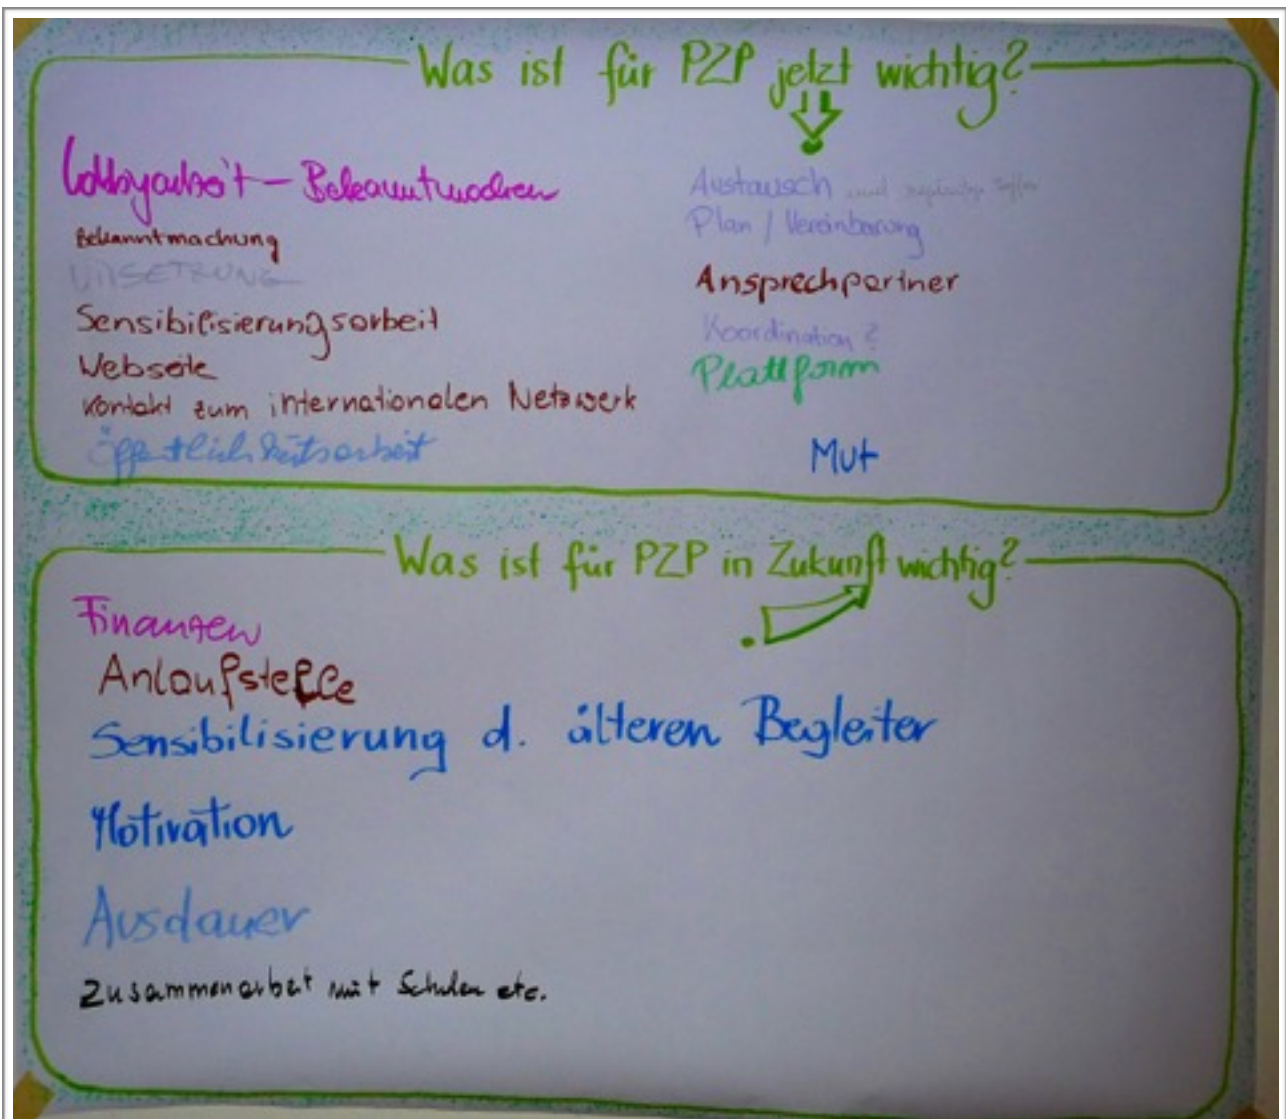 Was ist für PZP jetzt wichtig?
Lobbyarbeit – Bekanntmachen
Bekanntmachung
UMSETZUNG
Sensibilisierungsarbeit
Webseite
Kontakt zum internationalen Netzwerk
Öffentlichkeitsarbeit
Austausch und
Plan / Vereinbarung
Ansprechpartner
Koordination?
Plattform
Mut
Was ist für PZP in Zukunft wichtig?
Finanzen
Anlaufstelle
Sensibilisierung d. älteren Begleiter
Motivation
Ausdauer
Zusammenarbeit mit Schulen etc.